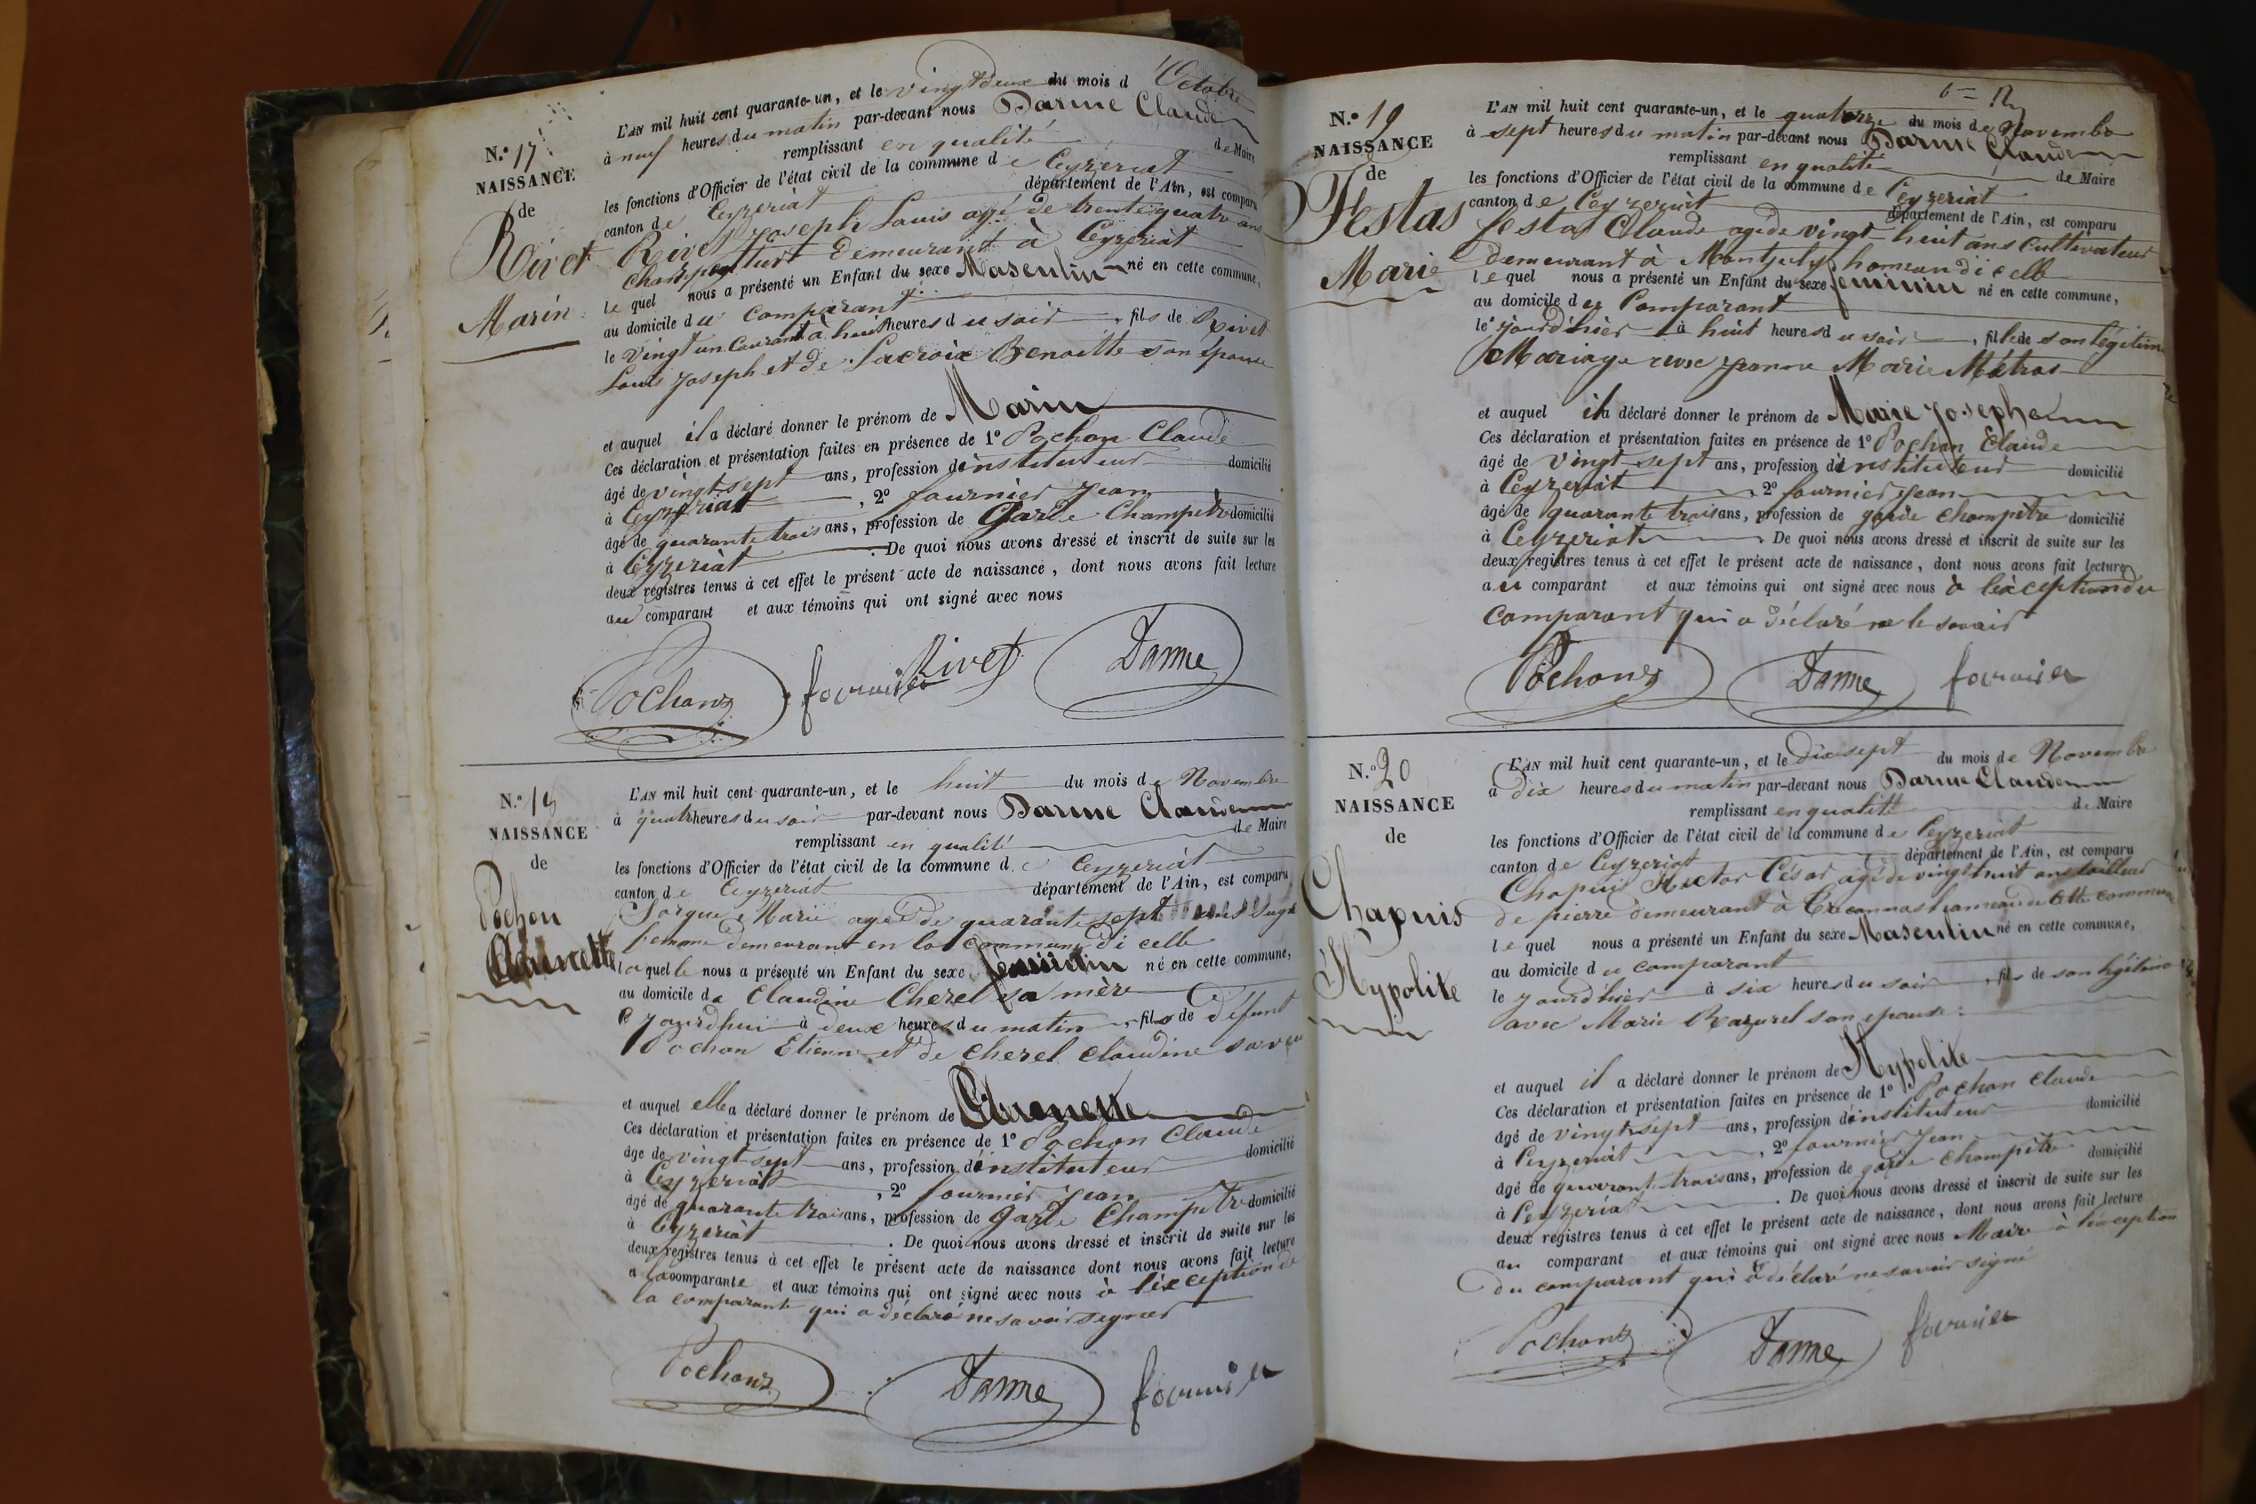 N.° 17
NAISSANCE
de
Rivet
Marin
L'AN mil huit cent quarante-un, et le vingtdeux du mois d'Octobre
à neuf heures du matin par-devant nous Darme Claude
remplissant en qualité de Maire
les fonctions d'Officier de l'état civil de la commune de Ceyzeriat
canton de Ceyzeriat département de l'Ain, est comparu
Rivet Joseph Louis agé de trente quatre ans
demeurant à Ceyzeriat
le quel nous a présenté un Enfant du sexe Masculin né en cette commune,
au domicile du comparant
le vingt un Courant à huit heures du soir, fils de Rivet
Louis Joseph et de Lacroix Benoitte son épouse
et auquel il a déclaré donner le prénom de Marin
Ces déclaration et présentation faites en présence de 1° Pochon Claude
âgé de vingt sept ans, profession d'instituteur domicilié
à Ceyzeriat, 2° fournier Jean
âgé de quarante trois ans, profession de Garde Champêtre domicilié
à Ceyzeriat. De quoi nous avons dressé et inscrit de suite sur les
deux registres tenus à cet effet le présent acte de naissance, dont nous avons fait lecture
au comparant et aux témoins qui ont signé avec nous
Pochon fournier Rivet Darme
N.° 18
NAISSANCE
de
Pochon
L'AN mil huit cent quarante-un, et le huit du mois de Novembre
à quatre heures du soir par-devant nous Darme Claude
remplissant en qualité de Maire
les fonctions d'Officier de l'état civil de la commune de Ceyzeriat
canton de Ceyzeriat département de l'Ain, est comparu
Marie agée de quarante sept ans Sage
femme demeurant en la commune di celle
la quelle nous a présenté un Enfant du sexe féminin né en cette commune,
au domicile de Claudine Cherel sa mère
le jourd'hui à deux heures du matin, fils de défunt
Pochon Etienne et de Cherel Claudine sa veu
et auquel elle a déclaré donner le prénom de
Ces déclaration et présentation faites en présence de 1° Pochon Claude
âgé de vingt sept ans, profession d'instituteur domicilié
à Ceyzeriat, 2° fournier Jean
âgé de quarante trois ans, profession de Garde Champêtre domicilié
à Ceyzeriat. De quoi nous avons dressé et inscrit de suite sur les
deux registres tenus à cet effet le présent acte de naissance dont nous avons fait lecture
a la comparante et aux témoins qui ont signé avec nous à l'exception de
la comparante qui a déclaré ne savoir signer
Pochon Darme fournier
N.° 19
NAISSANCE
de
Festas
Marie
L'AN mil huit cent quarante-un, et le quatorze du mois de Novembre
à sept heures du matin par-devant nous Darme Claude
remplissant en qualité de Maire
les fonctions d'Officier de l'état civil de la commune de Ceyzeriat
canton de Ceyzeriat département de l'Ain, est comparu
festas Claude agé de vingt huit ans cultivateur
demeurant à Montjuly hameau di celle
le quel nous a présenté un Enfant du sexe féminin né en cette commune,
au domicile du Comparant
le jourd'hier à huit heures du soir, fille de son légitime
Mariage avec Jeanne Marie Métras
et auquel il a déclaré donner le prénom de Marie Josephe
Ces déclaration et présentation faites en présence de 1° Pochon Claude
âgé de vingt sept ans, profession d'instituteur domicilié
à Ceyzeriat, 2° fournier Jean
âgé de quarante trois ans, profession de garde champêtre domicilié
à Ceyzeriat. De quoi nous avons dressé et inscrit de suite sur les
deux registres tenus à cet effet le présent acte de naissance, dont nous avons fait lecture
au comparant et aux témoins qui ont signé avec nous à l'exception du
comparant qui a déclaré ne le savoir
Pochon Darme fournier
N.° 20
NAISSANCE
de
Chapuis
Hypolite
L'AN mil huit cent quarante-un, et le dix sept du mois de Novembre
à dix heures du matin par-devant nous Darme Claude
remplissant en qualité de Maire
les fonctions d'Officier de l'état civil de la commune de Ceyzeriat
canton de Ceyzeriat département de l'Ain, est comparu
Chapuis Hector César agé de vingt huit ans tailleur
de pierre demeurant à hameau de cette commune
le quel nous a présenté un Enfant du sexe Masculin né en cette commune,
au domicile du comparant
le jourd'hier à six heures du soir, fils de son légitime
avec Marie Razurel son epouse
et auquel il a déclaré donner le prénom de Hypolite
Ces déclaration et présentation faites en présence de 1° Pochon Claude
âgé de vingt sept ans, profession d'instituteur domicilié
à Ceyzeriat, 2° fournier Jean
âgé de quarante trois ans, profession de garde champêtre domicilié
à Ceyzeriat. De quoi nous avons dressé et inscrit de suite sur les
deux registres tenus à cet effet le présent acte de naissance, dont nous avons fait lecture
au comparant et aux témoins qui ont signé avec nous Maire à l'exception
du comparant qui a déclaré ne savoir signé
Pochon Darme fournier